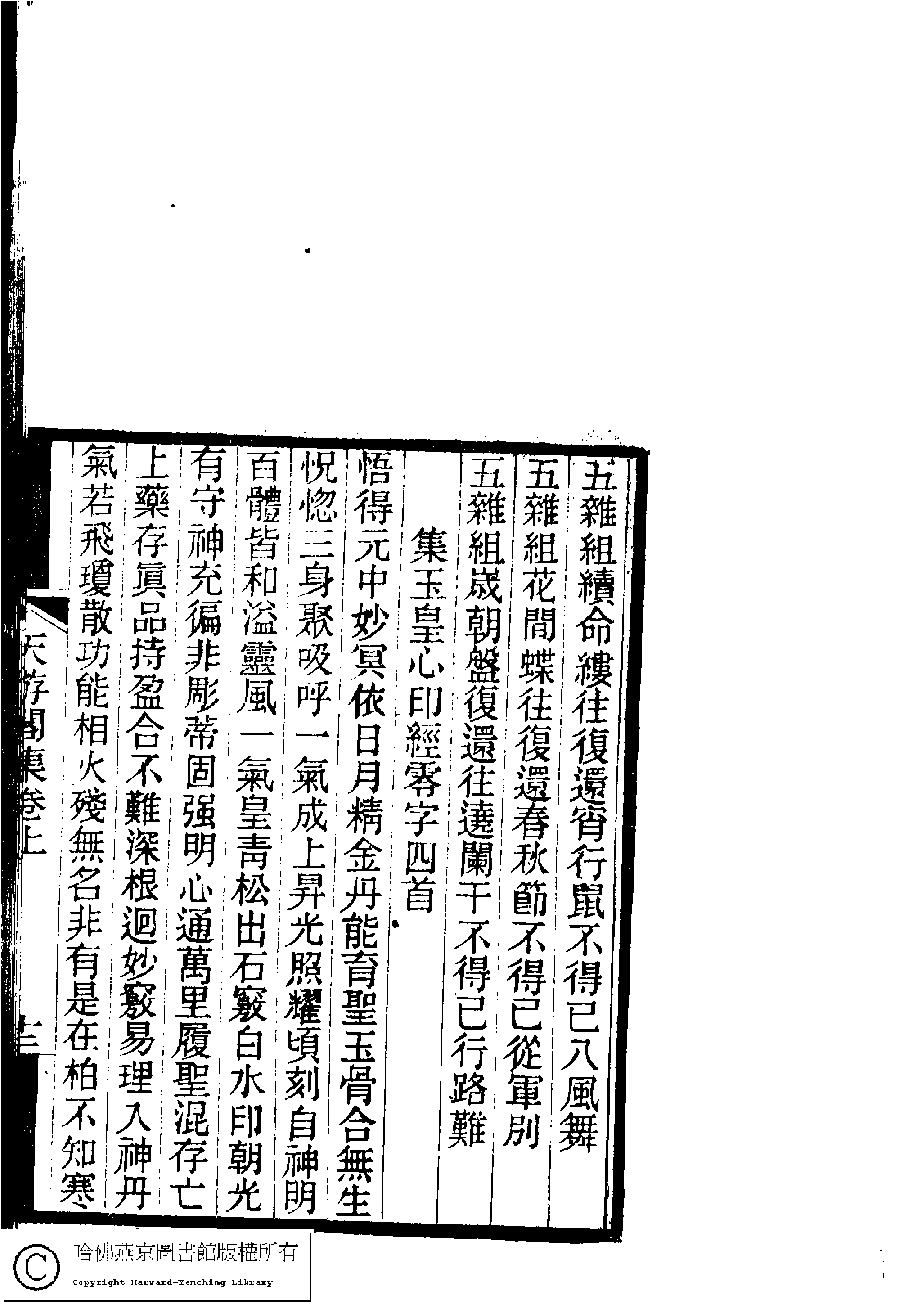 五雜組續命縷往復還宵行鼠不得已八風舞
五雜組花間蝶往復還春秋節不得已從軍別
五雜組歲朝盤復還往遶闌干不得已行路難
集玉皇心印經零字四首
悟得元中妙冥依日月精金丹能育聖玉骨合無生
怳惚三身聚吸呼一氣成上昇光照耀頃刻自神明
百體皆和溢靈風一氣皇青松出石竅白水印朝光
有守神充徧非彫蒂固强明心通萬里履聖混存亡
上藥存眞品持盈合不難深根迴妙竅易理入神丹
氣若飛瓊散功能相火殘無名非有是在柏不知寒
天游閣集卷上
十二
哈佛燕京圖書館版權所有
Copyright Harvard-Yenching Library